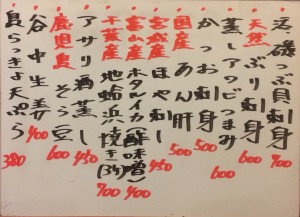 活磯つぶ貝刺身 700
天然ぶり刺身 600
蒸しアワビつまみ 600
かつお刺身 500
国産あん肝 500
宮城産ほや刺し 450
富山産ホタルイカ(酢味噌) 400
千葉産地蛤浜焼き(3ヶ) 700
アサリ酒蒸し 450
鹿児島そら豆 600
谷中生姜 400
島らっきょ天ぷら 380